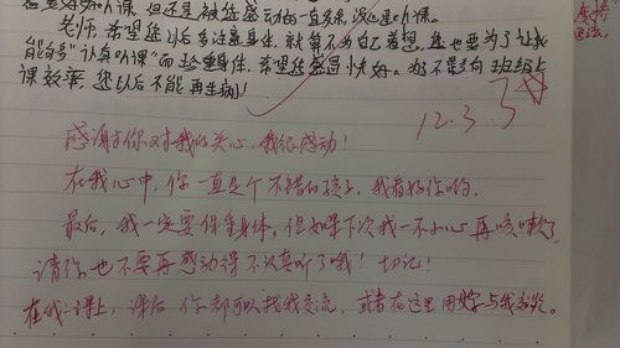 但还是被您感动的一直多亲,没心思听课。
老师,希望您以后多注意身体,就算不为自己着想,您也要为了让我
能够多“认真听课”而珍重身体。希望您感冒快好。为了不影响班级上
课效率,您以后不能再生病!
12.3
感谢你对我的关心,我很感动!
在我心中,你一直是个不错的孩子,我看好你哟。
最后,我一定要保重身体,但如果下次我一不小心再咳嗽了,
请你也不要再感动得不认真听了哦!切记!
在我课上,课后你都可以找我交流,或者在这里用文字与我交谈。